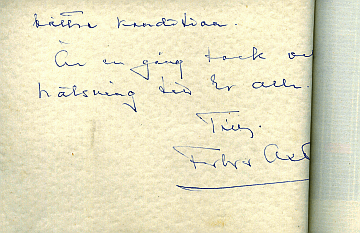 bättre kondition.
Än en gång tack och
hälsning till Er alla.
Tillg.
Axel